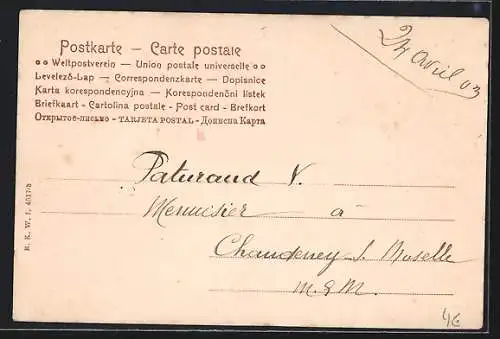 Postkarte – Carte postale
Weltpostverein – Union postale universelle
Levelező-Lap – Correspondenzkarte – Dopisnice
Karta korespondencyjna – Korespondenční lístek
Briefkaart - Cartolina postale - Post card - Brefkort
Открытое-письмо - TARJETA POSTAL - Дописна Карта
24 avril 03
Paturaud V.
Menuisier à
Chaudeney s. Moselle
M. & M.
R. K. W. I. 4517-3
4€